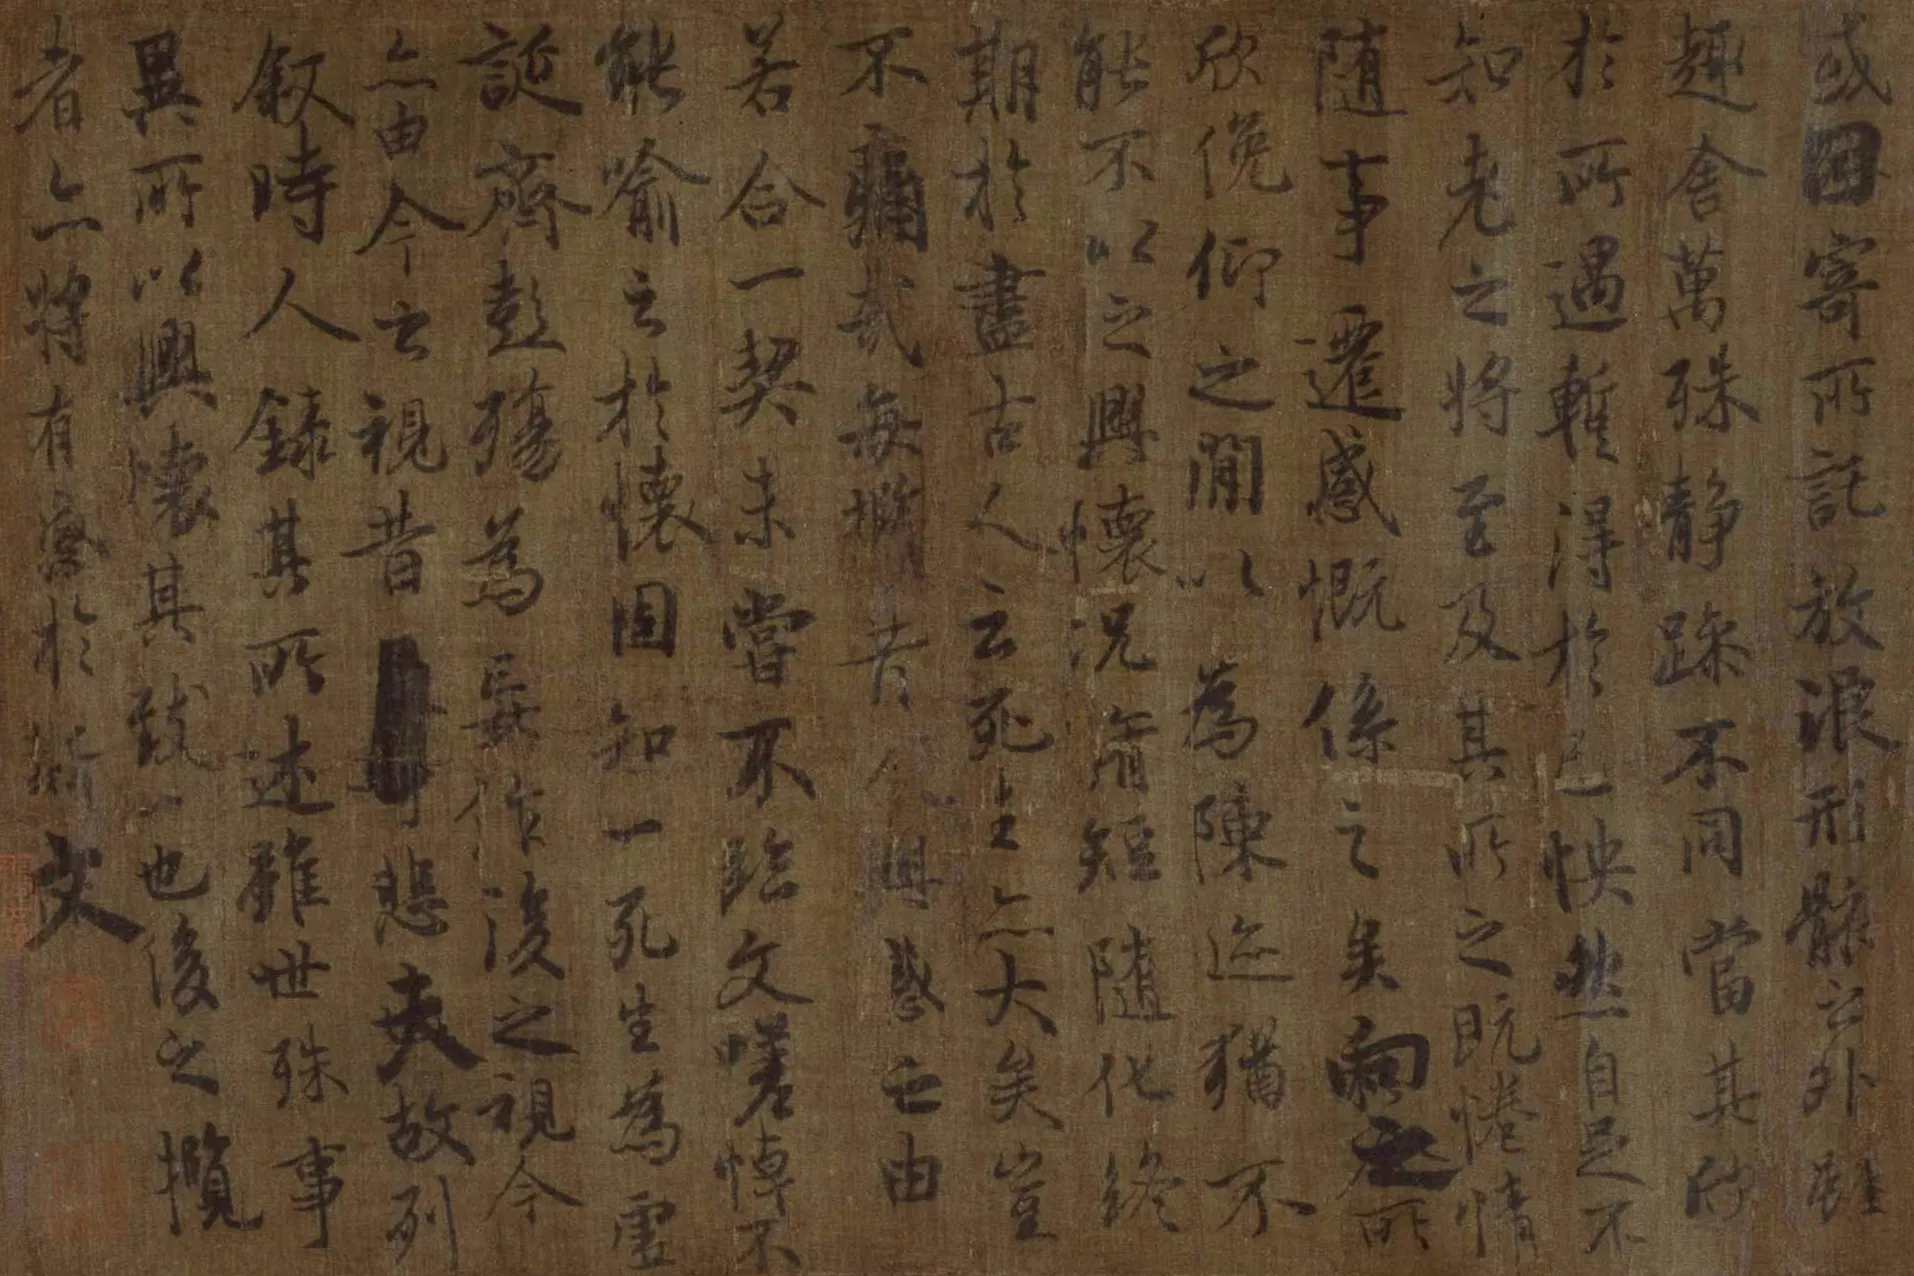 或因寄所託放浪形骸之外雖
趣舍萬殊静躁不同當其欣
於所遇暫得於己怏然自足不
知老之將至及其所之既惓情
随事遷感慨係之矣向之所
欣俛仰之閒以為陳迹猶不
能不以之興懷况脩短隨化終
期於盡古人云死生亦大矣豈
不痛哉每攬昔人興感之由
若合一契未嘗不臨文嗟悼不
能喻之於懷固知一死生為虛
誕齊彭殤為妄作後之視今
亦由今之視昔悲夫故列
叙時人錄其所述雖世殊事
異所以興懷其致一也後之攬
者亦將有感於斯文